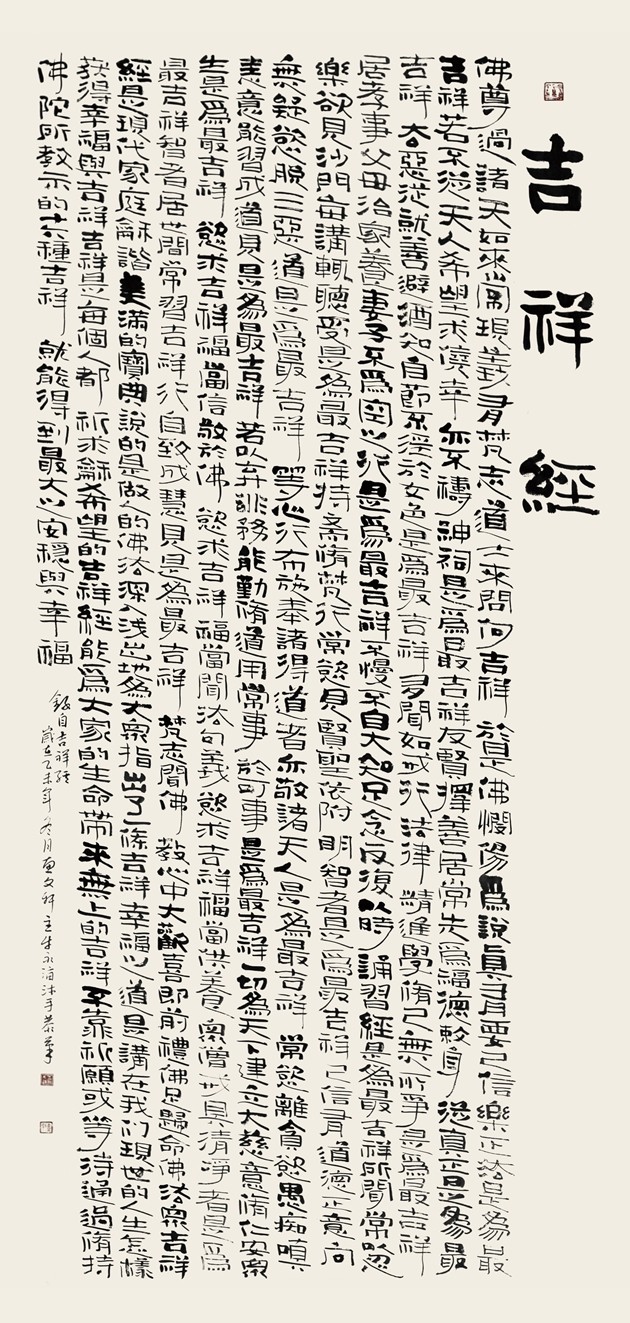 吉祥經
佛尊過諸天如來常現義有梵志道士來問何吉祥 於是佛憫傷爲說真有要已信樂正法是為最
吉祥若不從天人希望求僥幸亦不禱神祠是爲最吉祥友賢擇善居常先爲福德敕身從真正是為最
吉祥 去惡從就善避酒知自節不淫於女色是爲最吉祥多聞如戒行法律精進學脩已無所爭是爲最吉祥
居孝事父母治家養妻子不爲空之行是爲最吉祥不慢不自大知足念反復以時誦習經是為最吉祥所聞常忍
樂欲見沙門每講輒聽受是為最吉祥持齋脩梵行常慾見賢聖依附明智者是爲最吉祥已信有道德正意向
無疑慾脫三惡道是爲最吉祥 等心行布施奉諸得道者亦敬諸天人是為最吉祥 常慾離貪慾愚痴嗔
恚意能習成道見是為最吉祥若以弃非務能勤脩道用常事於可事是爲最吉祥一切為天下建立大慈意脩仁安眾
生是爲最吉祥 慾求吉祥福當信敬於佛 慾求吉祥福當聞法句義慾求吉祥福當供養眾僧戒具清淨者是爲
最吉祥智者居世間常習吉祥行自致成慧見是為最吉祥 梵志聞佛教心中大歡喜即前禮佛足歸命佛法眾吉祥
經是現代家庭龢諧美滿的寶典說的是做人的佛法深入淺出地為大眾指出了一條吉祥幸福之道是講在我們現世的人生怎樣
获得幸福與吉祥吉祥是每個人都祈求龢希望的吉祥經能爲大家的生命帶來無上的吉祥不靠祈願或等待通過脩持
佛陀所教示的十六種吉祥 就能得到最大之安穩與幸福
錄自吉祥經
歲在乙未年冬月